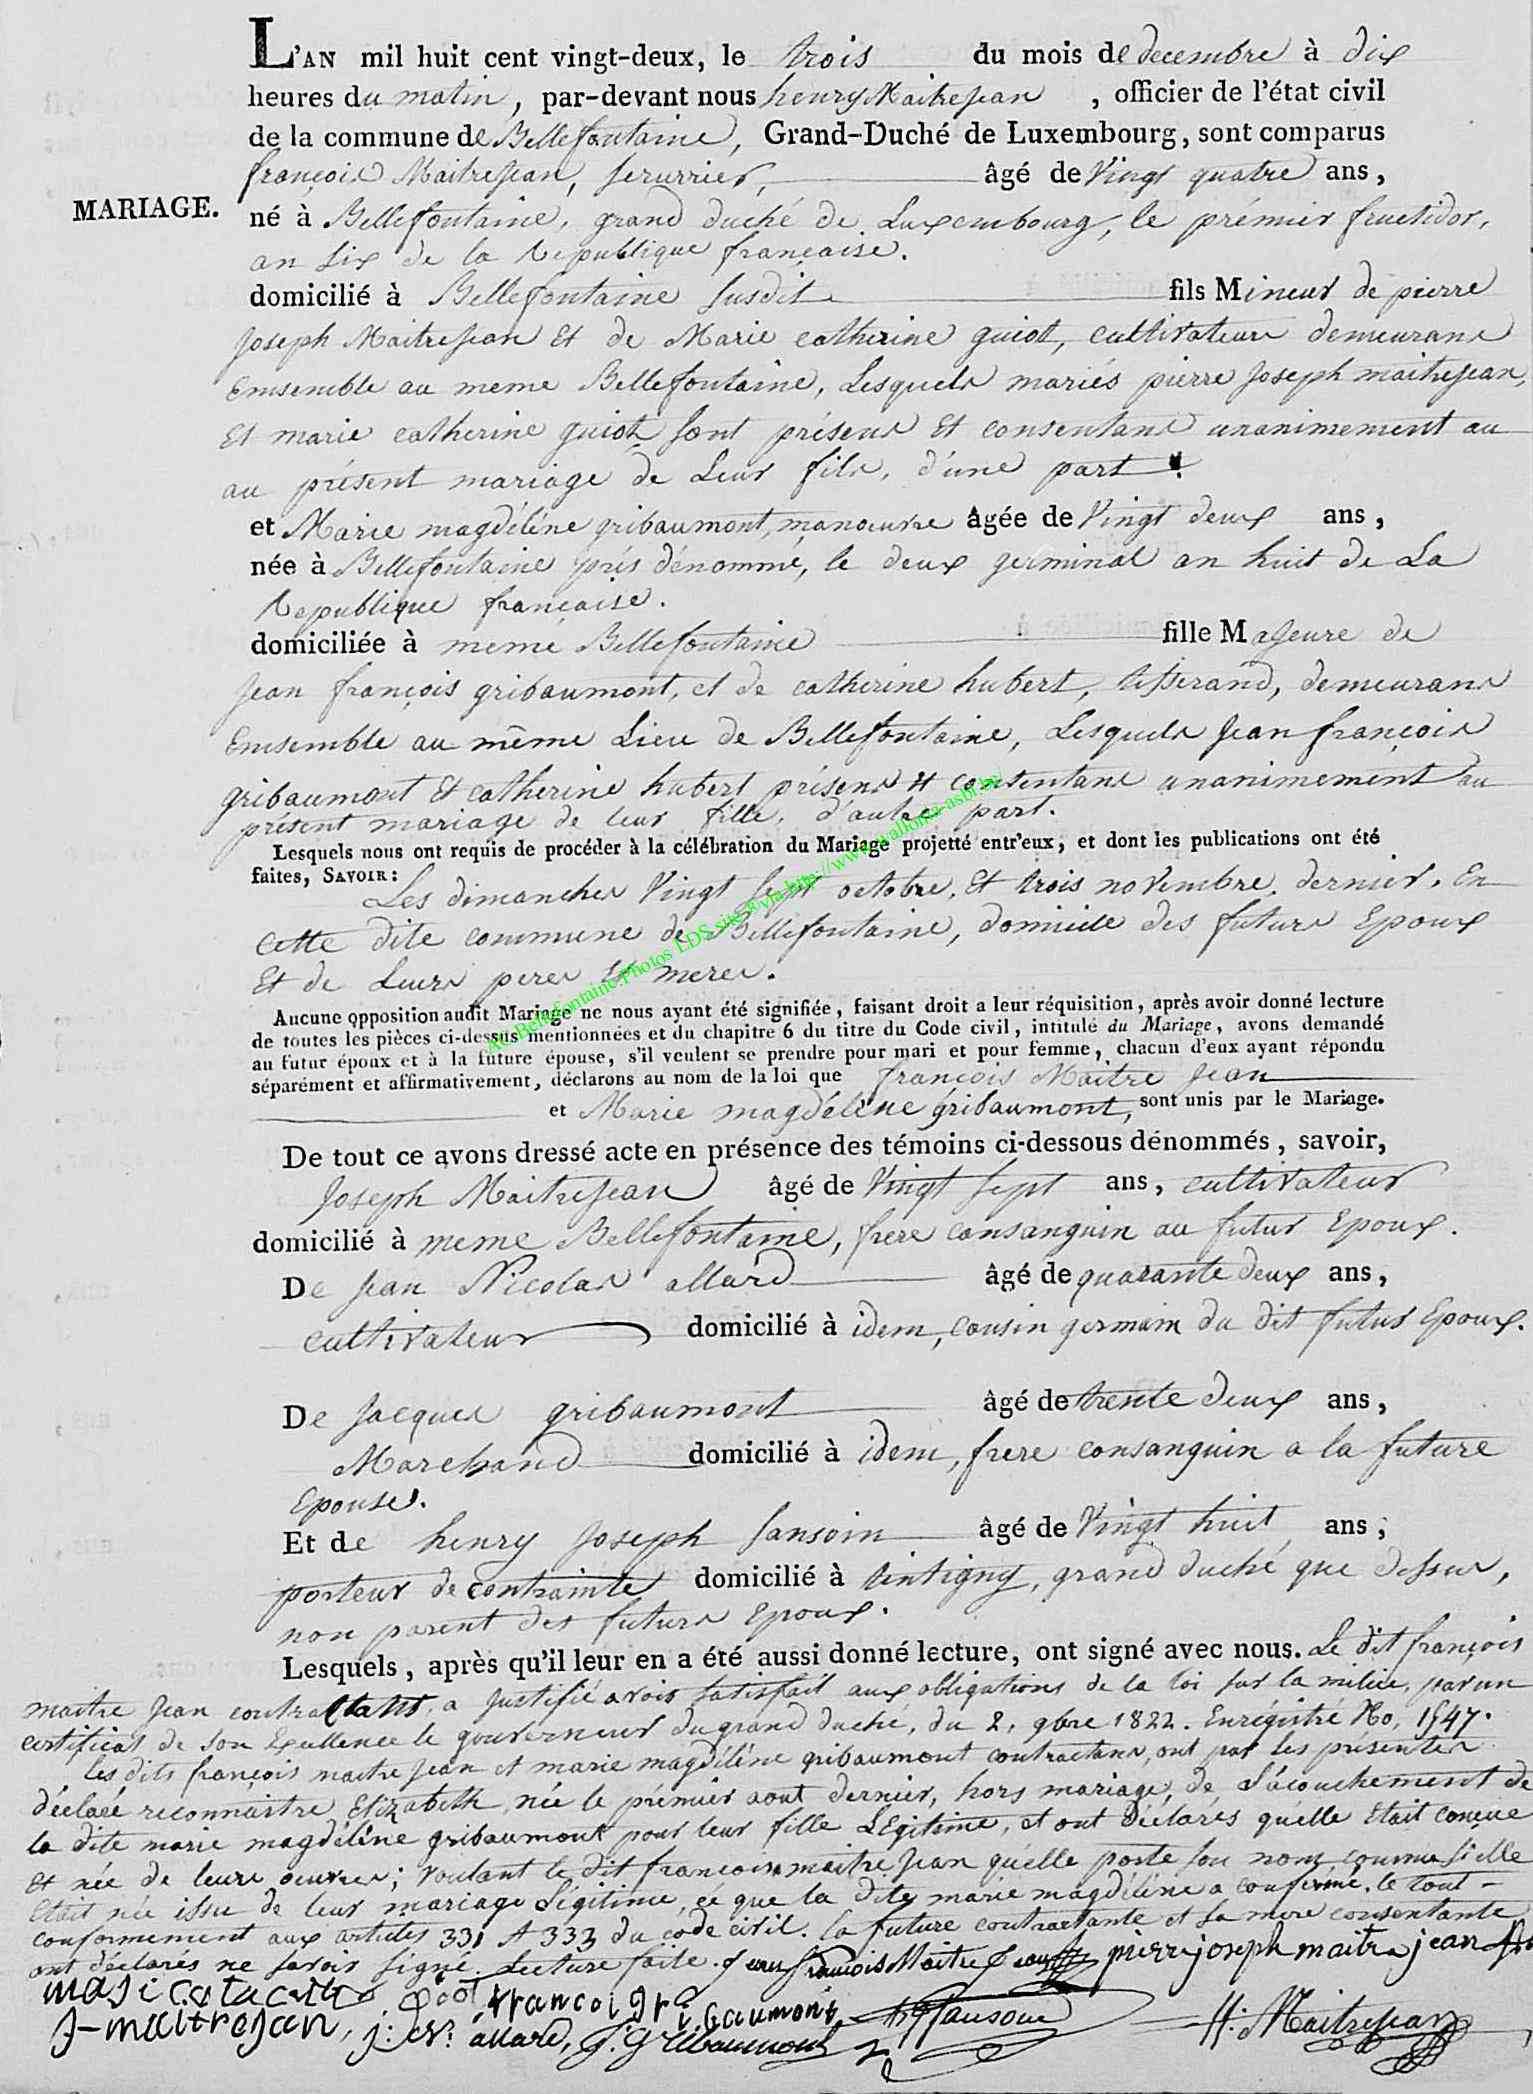 L'AN mil huit cent vingt-deux, le trois du mois de decembre à dix
heures du matin, par-devant nous henry Maitrejean, officier de l'état civil
de la commune de Bellefontaine, Grand-Duché de Luxembourg, sont comparus
françois Maitrejean, serurrier, âgé de Vingt quatre ans,
MARIAGE.
né à Bellefontaine, grand duché de Luxembourg, le prémier fructidor,
an six de la Republique française.
domicilié à Bellefontaine susdit fils Mineur de pierre
Joseph Maitrejean Et de Marie catherine guiot, cultivateurs demeurans
Emsemble au meme Bellefontaine, Lesquels mariés pierre Joseph maitrejean,
Et marie catherine guiot sont présens Et consentans unanimement au
au présent mariage de Leur fils, d'une part.
et Marie magdéléne gribaumont, manoeuvre âgée de Vingt deux ans,
née à Bellefontaine prés dénommé, le deux germinal an huit de La
Republique française.
domiciliée à meme Bellefontaine fille Majeure de
Jean françois gribaumont, et de catherine hubert, tisserand, demeurans
Emsemble au même Lieu de Bellefontaine, Lesquels Jean françois
gribaumont Et catherine hubert présens et consentans unanimement au
présent mariage de leur fille, d'autre part.
Lesquels nous ont requis de procéder à la célébration du Mariage projetté entr'eux, et dont les publications ont été
faites, SAVOIR:
Les dimanches Vingt sept octobre, Et trois novembre dernier, En
cette dite commune de Bellefontaine, domicile des futurs Epoux
Et de Leurs peres Et meres.
AC Bellefontaine Photos LDS site via http://www.wallonia-asbl.be/
Aucune opposition audit Mariage ne nous ayant été signifiée, faisant droit a leur réquisition, après avoir donné lecture
de toutes les pièces ci-dessus mentionnées et du chapitre 6 du titre du Code civil, intitulé du Mariage, avons demandé
au futur époux et à la future épouse, s'il veulent se prendre pour mari et pour femme, chacun d'eux ayant répondu
séparément et affirmativement, déclarons au nom de la loi que françois Maitre Jean
et Marie magdéléne gribaumont, sont unis par le Mariage.
De tout ce avons dressé acte en présence des témoins ci-dessous dénommés, savoir,
Joseph Maitrejean âgé de Vingt sept ans, cultivateur
domicilié à meme Bellefontaine, frere consanguin au futur Epoux.
De Jean Nicolas allard âgé de quarante deux ans,
cultivateur domicilié à idem, cousin germain du dit futur Epoux.
De Jacques gribaumont âgé de trente deux ans,
Marchand domicilié à idem, frere consanguin a la future
Epouse.
Et de henry Joseph Sansoin âgé de Vingt huit ans,
porteur de contrainte domicilié à tintigny, grand duché que dessus,
non parent des futurs Epoux.
Lesquels, après qu'il leur en a été aussi donné lecture, ont signé avec nous. Le dit françois
maitre Jean contractant, a justifié avoir satisfait aux obligations de la loi sur la milice, par un
certificat de son Excellence le gouverneur du grand duché, du 2, 9bre 1822. Enrégistré No, 1547.
Les dits françois maitre Jean et marie magdéléne gribaumont contractans, ont par les présentes
déclaré reconnaitre Elizabeth, née le prémier aout dernier, hors mariage, de L'acouchement de
la dite marie magdéléne gribaumont pour leur fille Légitime, et ont déclarés qu'elle Etait conçue
Et née de leurs oeuvres; voulant le dit françois maitre Jean qu'elle porte son nom comme si elle
Etait née issue de leur mariage Légitime, ce que la dite marie magdéléne a confirmé. le tout
conformement aux articles 331 A 333 du code civil. la future contractante et sa mere consentante
ont déclarés ne savoir signé. Lecture faite. Jean françois Maitre Jean pierre joseph maitre jean
mari catacrin giot francoi gribaumont
J-maitrejean, j: N: allard, J. Gribaumont HJ Sansoin H: Maitrejean